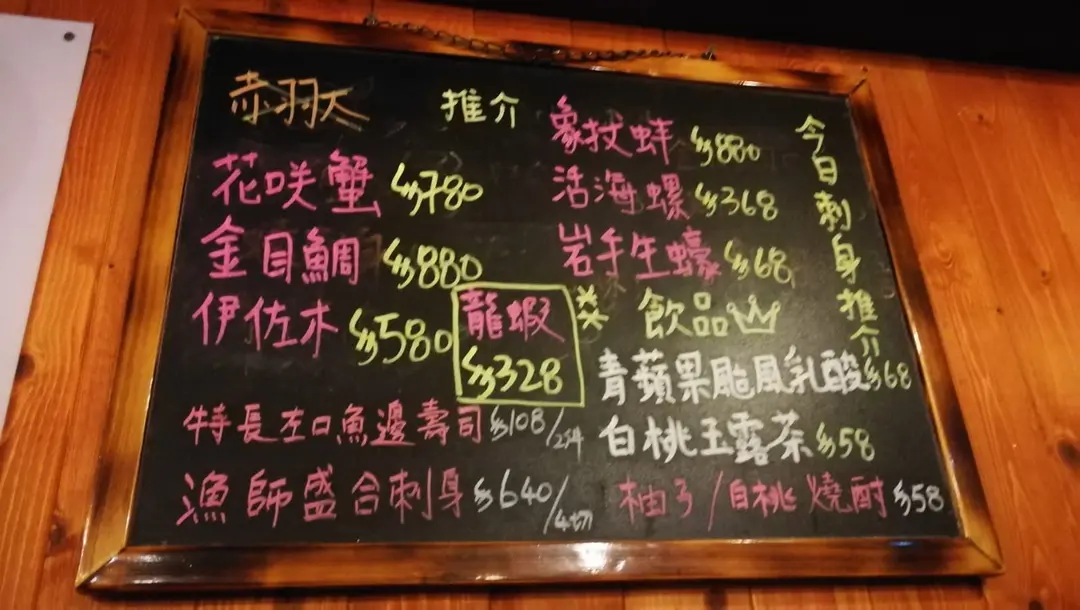 赤羽太 推介
花咲蟹 $780
金目鯛 $880
伊佐木 $580
龍蝦
$328
特長左口魚邊壽司 $108/2件
漁師盛合刺身 $640/4切
今日刺身推介
象拔蚌 $880
活海螺 $368
岩手生蠔 $68
飲品
青蘋果颱風乳酸 $68
白桃玉露茶 $58
柚子/白桃燒酎 $58